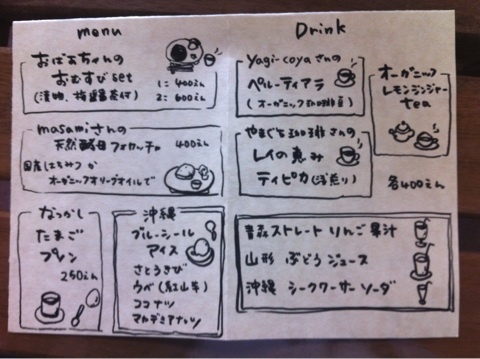 menu
おばぁちゃんの
おむすび set
(漬物、梅醤番茶付)
1: 400えん
2: 600えん
masamiさんの
天然酵母フォカッチャ 400えん
国産はちみつ か
オーガニックオリーブオイルで
なつかし
たまご
プリン
250えん
沖縄
ブルーシール
アイス
さとうきび
ウベ(紅山芋)
ココナツ
マカデミアナッツ
Drink
yagi-coyaさんの
ペルーティアラ
(オーガニック珈琲豆)
やまぐち珈琲さんの
レイの恵み
ティピカ(浅煎り)
オーガニック
レモンジンジャー
tea
各400えん
青森 ストレート りんご果汁
山形 ぶどうジュース
沖縄 シークワーサーソーダ